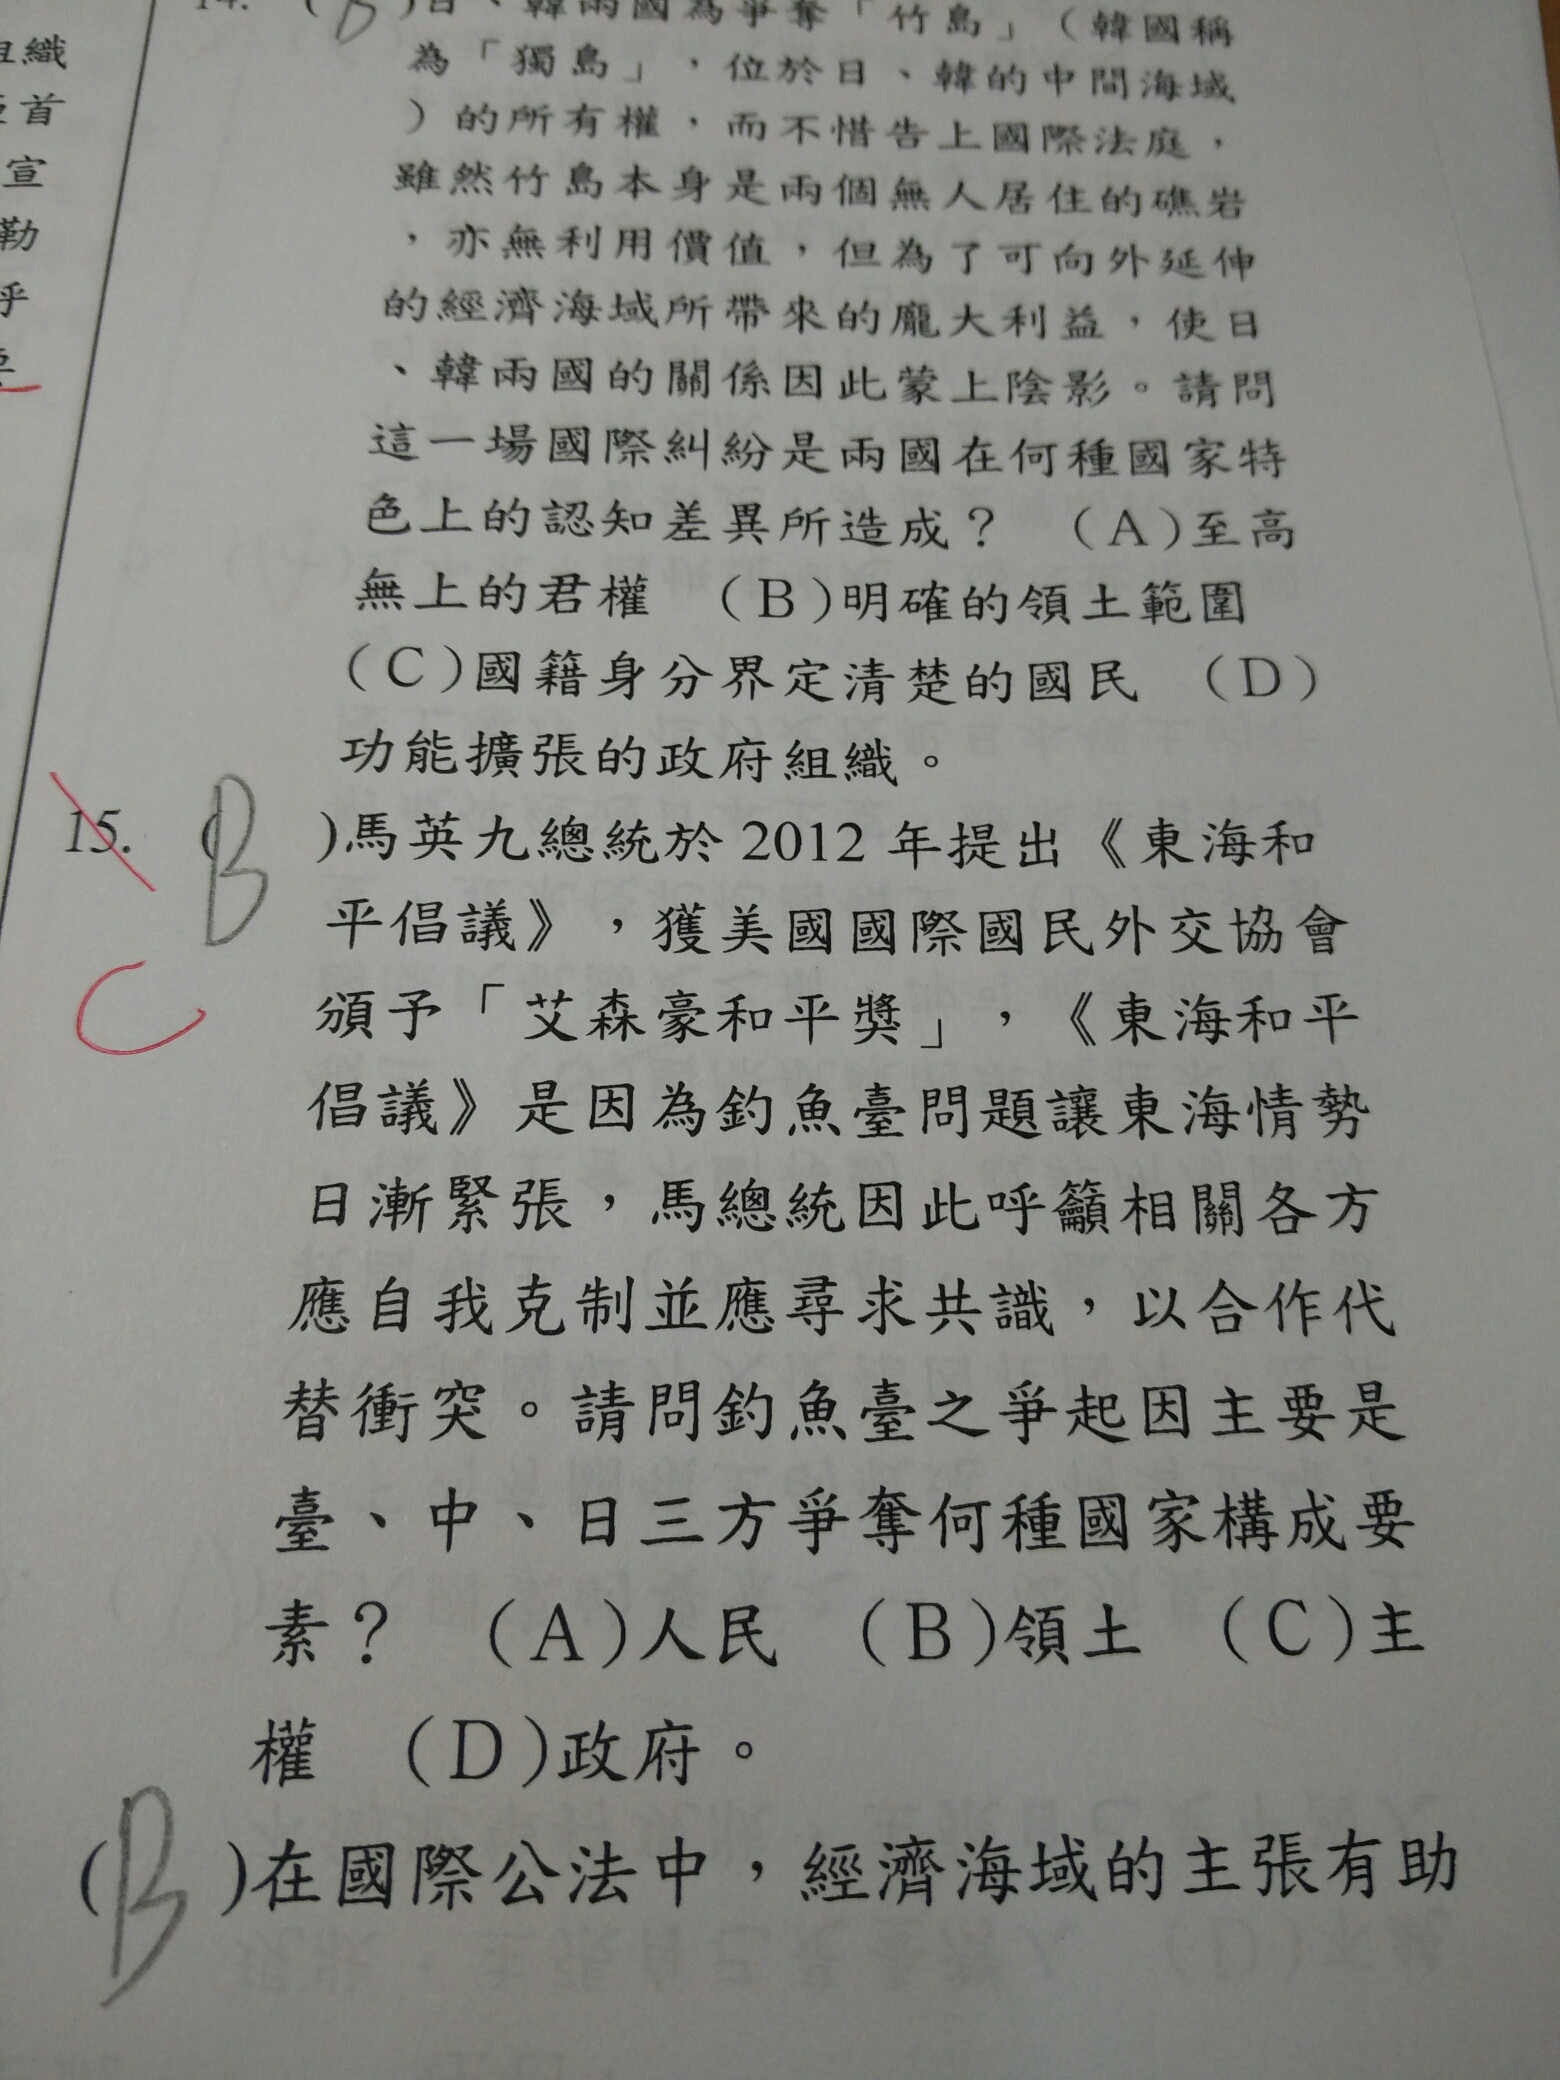 組織
首
宣
勒
呼
14. (B)日、韓兩國為爭奪「竹島」(韓國稱
為「獨島」,位於日、韓的中間海域
)的所有權,而不惜告上國際法庭,
雖然竹島本身是兩個無人居住的礁岩
,亦無利用價值,但為了可向外延伸
的經濟海域所帶來的龐大利益,使日
、韓兩國的關係因此蒙上陰影。請問
這一場國際糾紛是兩國在何種國家特
色上的認知差異所造成? (A)至高
無上的君權 (B)明確的領土範圍
(C)國籍身分界定清楚的國民 (D)
功能擴張的政府組織。
15. (B)馬英九總統於2012年提出《東海和
平倡議》,獲美國國際國民外交協會
C
頒予「艾森豪和平獎」,《東海和平
倡議》是因為釣魚臺問題讓東海情勢
日漸緊張,馬總統因此呼籲相關各方
應自我克制並應尋求共識,以合作代
替衝突。請問釣魚臺之爭起因主要是
臺、中、日三方爭奪何種國家構成要
素? (A)人民 (B)領土 (C)主
權 (D)政府。
(B)在國際公法中,經濟海域的主張有助